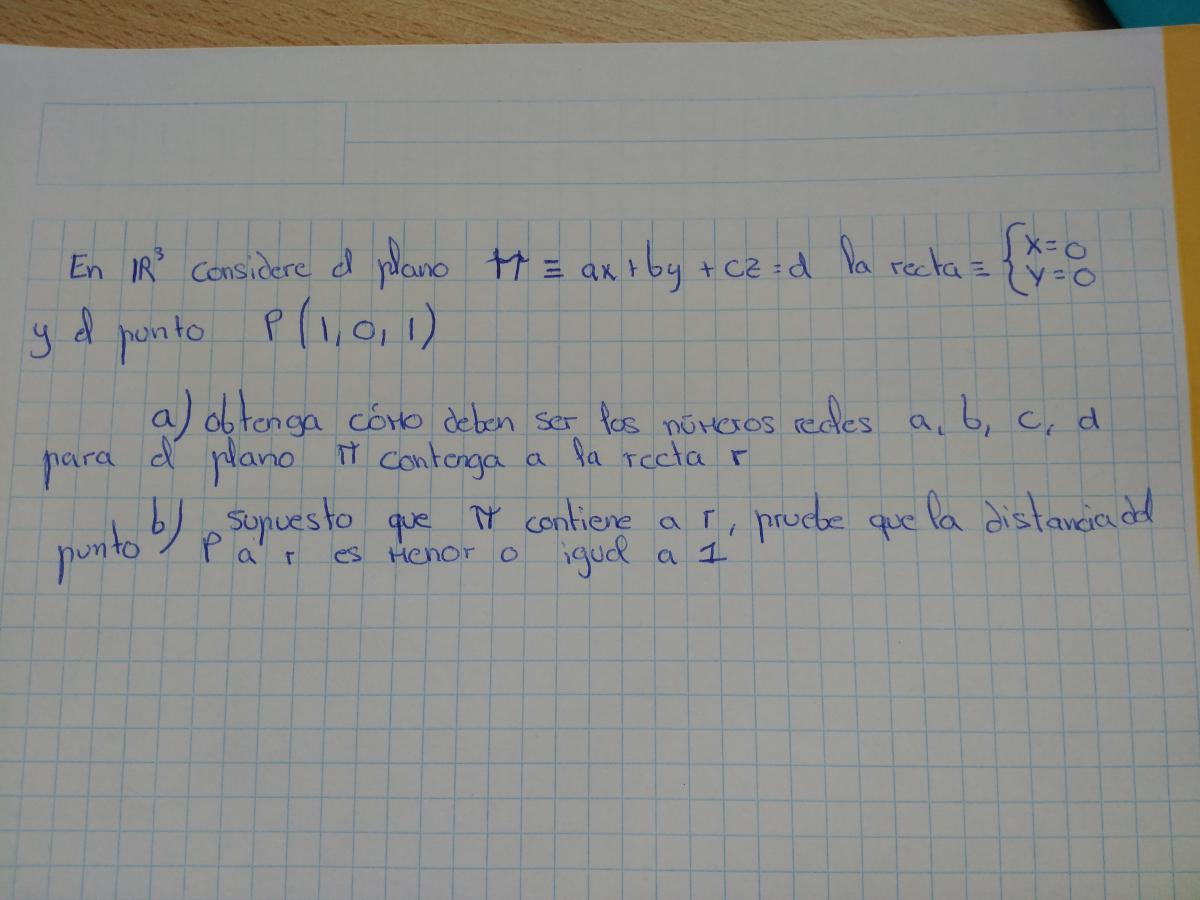 En ℝ³ considere el plano π ≡ ax + by + cz = d la recta ≡ { x = 0 y = 0
y el punto P (1, 0, 1)
a) obtenga cómo deben ser los números reales a, b, c, d
para el plano π contenga a la recta r
b) supuesto que π contiene a r, pruebe que la distancia del
punto P a r es menor o igual a 1